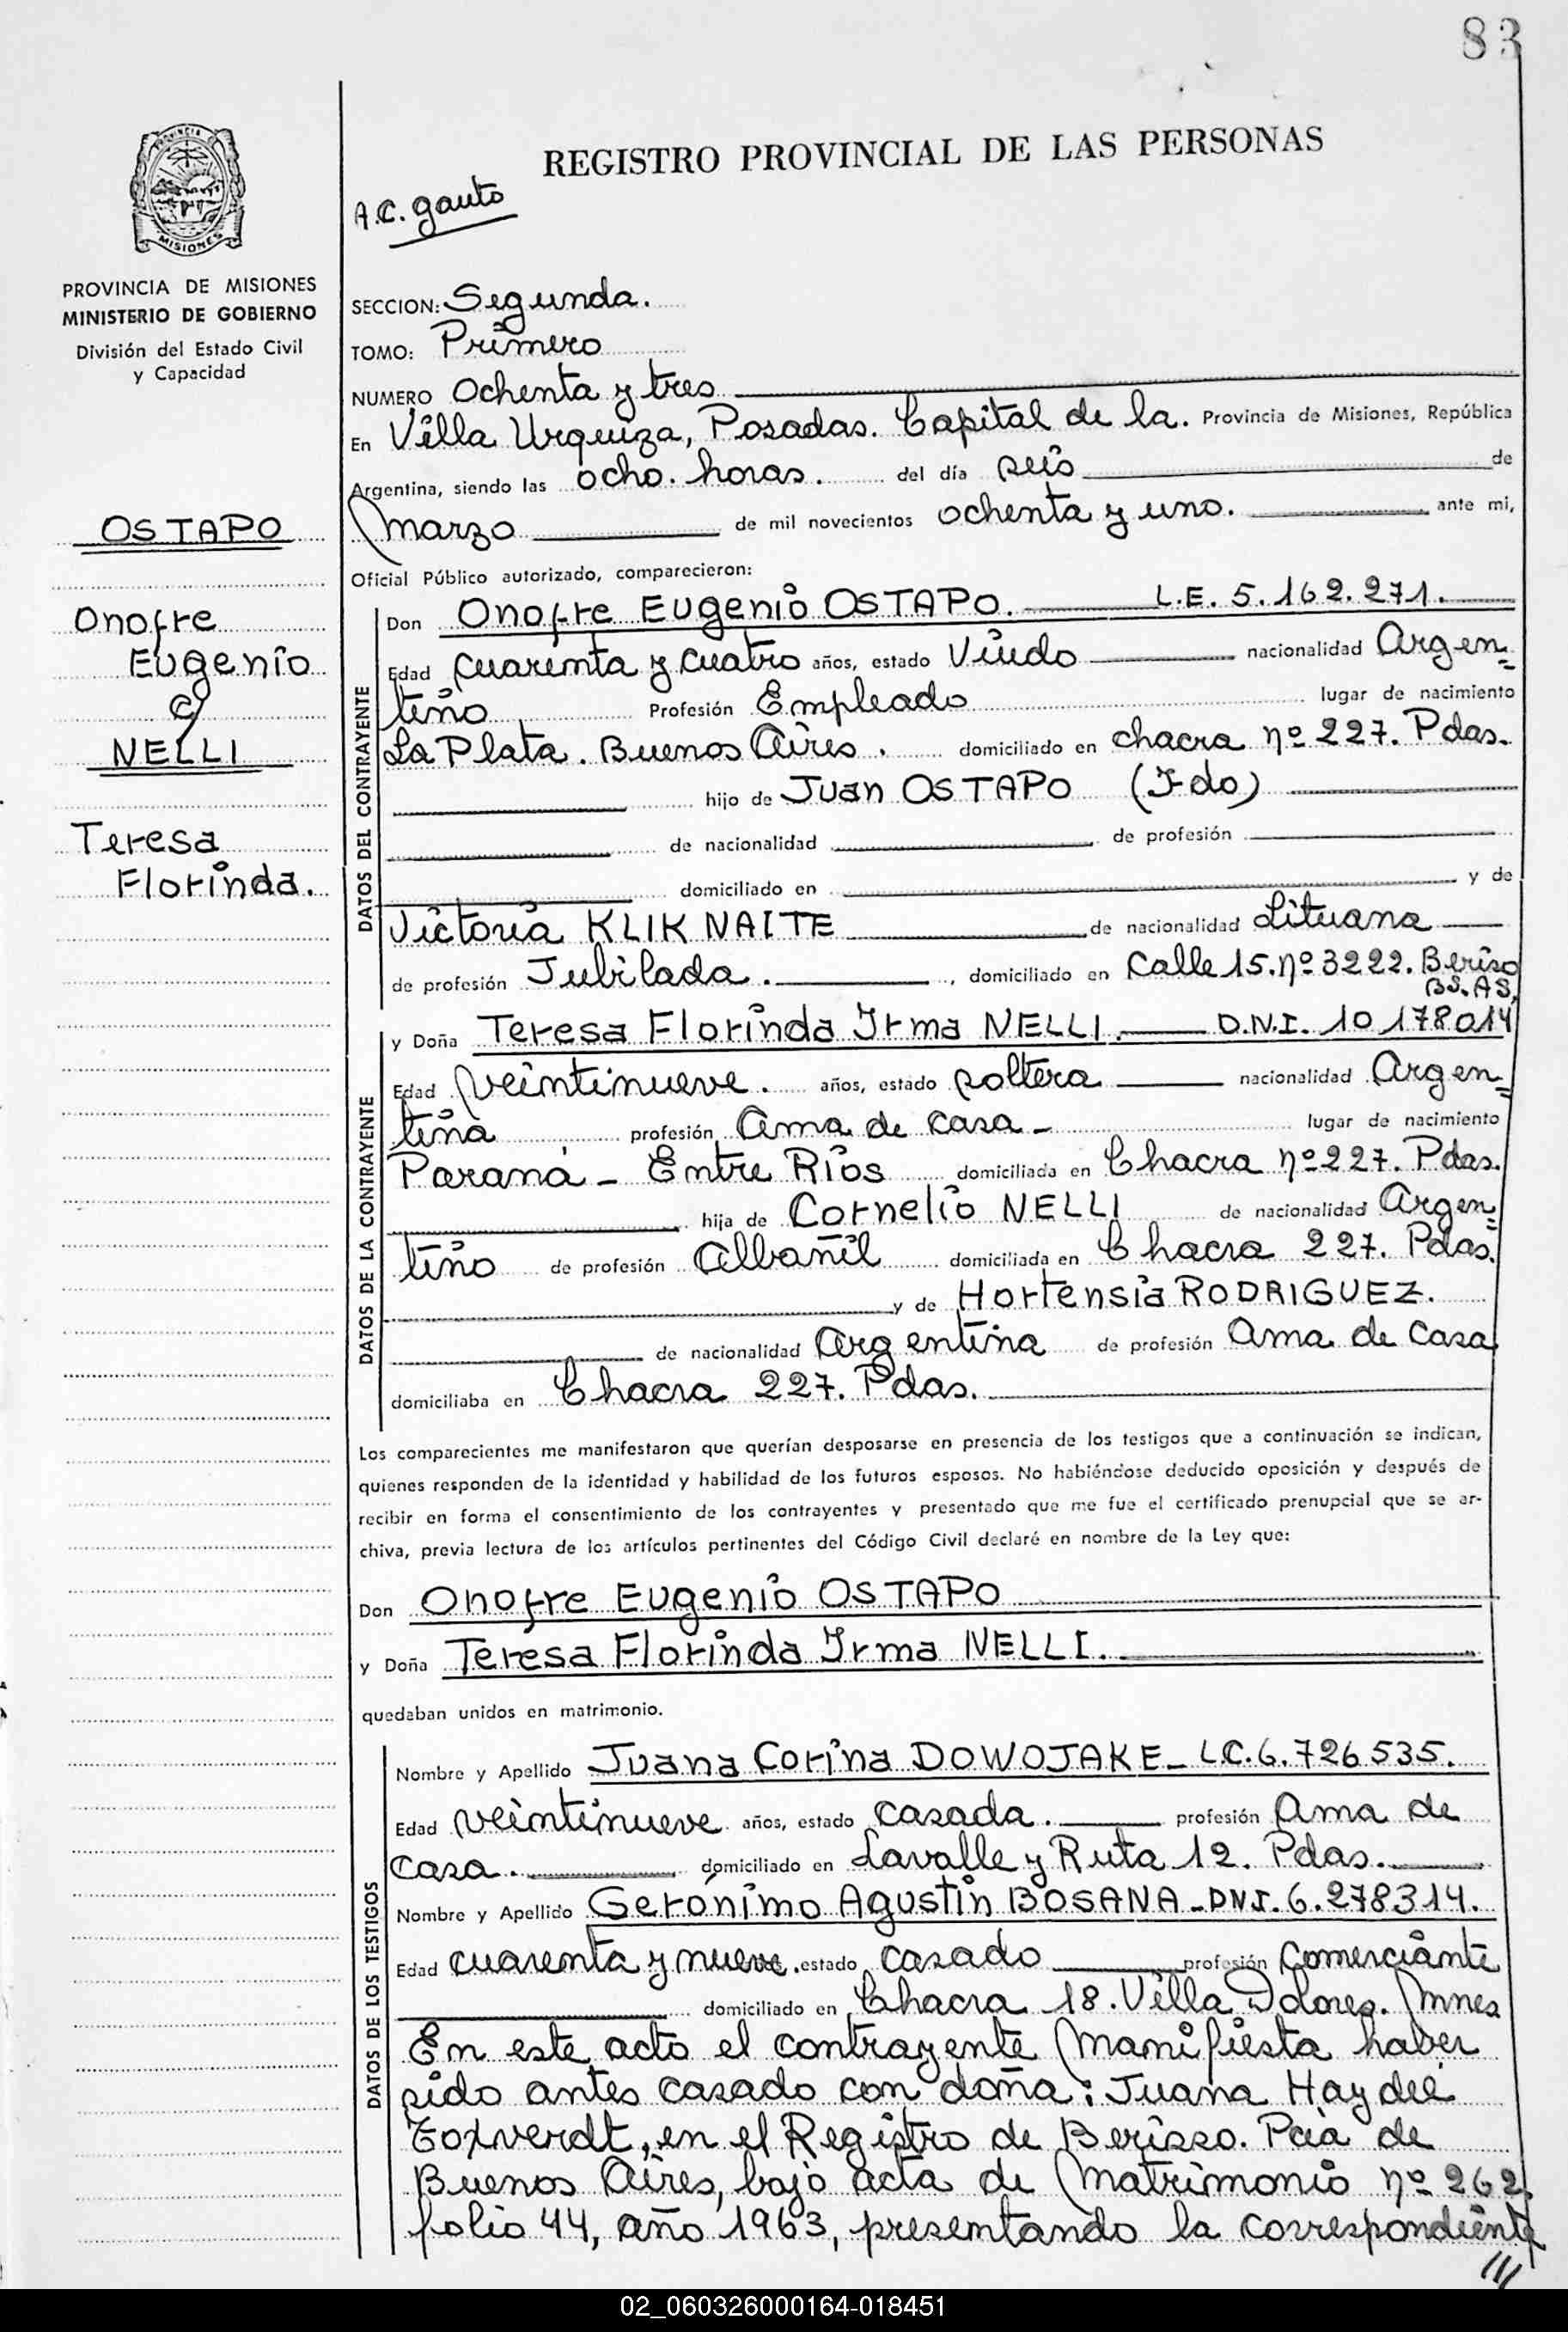 83
REGISTRO PROVINCIAL DE LAS PERSONAS
A.C. Gauto
PROVINCIA
MISIONES
PROVINCIA DE MISIONES
MINISTERIO DE GOBIERNO
División del Estado Civil
y Capacidad
OSTAPO
Onofre
Eugenio
c/
NELLI
Teresa
Florinda.
SECCION: Segunda.
TOMO: Primero
NUMERO Ochenta y tres
En Villa Urquiza, Posadas. Capital de la. Provincia de Misiones, República
Argentina, siendo las ocho. horas. del día seis de
Marzo de mil novecientos ochenta y uno. ante mi,
Oficial Público autorizado, comparecieron:
DATOS DEL CONTRAYENTE
Don Onofre Eugenio OSTAPO. L.E. 5.162.271.
Edad Cuarenta y cuatro años, estado Viudo nacionalidad Argen=
tino Profesión Empleado lugar de nacimiento
La Plata. Buenos Aires. domiciliado en chacra nº 227. Pdas.
hijo de Juan OSTAPO (Fdo)
de nacionalidad de profesión
domiciliado en y de
Victoria KLIKNAITE de nacionalidad Lituana
de profesión Jubilada. , domiciliado en Calle 15. nº 3222. Beriso
BS. AS.
DATOS DE LA CONTRAYENTE
y Doña Teresa Florinda Irma NELLI. D.N.I. 10 178014
Edad Veintinueve. años, estado soltera nacionalidad Argen=
tina profesión Ama de casa - lugar de nacimiento
Paraná - Entre Ríos domiciliada en Chacra nº 227. Pdas.
hija de Cornelio NELLI de nacionalidad Argen=
tino de profesión Albañil domiciliada en Chacra 227. Pdas.
y de Hortensia RODRIGUEZ.
de nacionalidad Argentina de profesión Ama de Casa
domiciliaba en Chacra 227. Pdas.
Los comparecientes me manifestaron que querían desposarse en presencia de los testigos que a continuación se indican,
quienes responden de la identidad y habilidad de los futuros esposos. No habiéndose deducido oposición y después de
recibir en forma el consentimiento de los contrayentes y presentado que me fue el certificado prenupcial que se ar-
chiva, previa lectura de los artículos pertinentes del Código Civil declaré en nombre de la Ley que:
Don Onofre Eugenio OSTAPO
y Doña Teresa Florinda Irma NELLI.
quedaban unidos en matrimonio.
DATOS DE LOS TESTIGOS
Nombre y Apellido Juana Corina DOWOJAKE - L.C. 6.726 535.
Edad Veintinueve años, estado Casada. profesión Ama de
Casa. domiciliado en Lavalle y Ruta 12. Pdas.
Nombre y Apellido Gerónimo Agustin BOSANA - DNI. 6.278314.
Edad cuarenta y nueve. estado casado profesión Comerciante
domiciliado en Chacra 18. Villa Dolores. Mnes
En este acto el contrayente Manifiesta haber
sido antes casado con doña: Juana Haydeé
en el Registro de Berisso. Pcia de
Buenos Aires, bajo acta de Matrimonio nº 262,
folio 44, año 1963, presentando la correspondiente
///
02_060326000164-018451